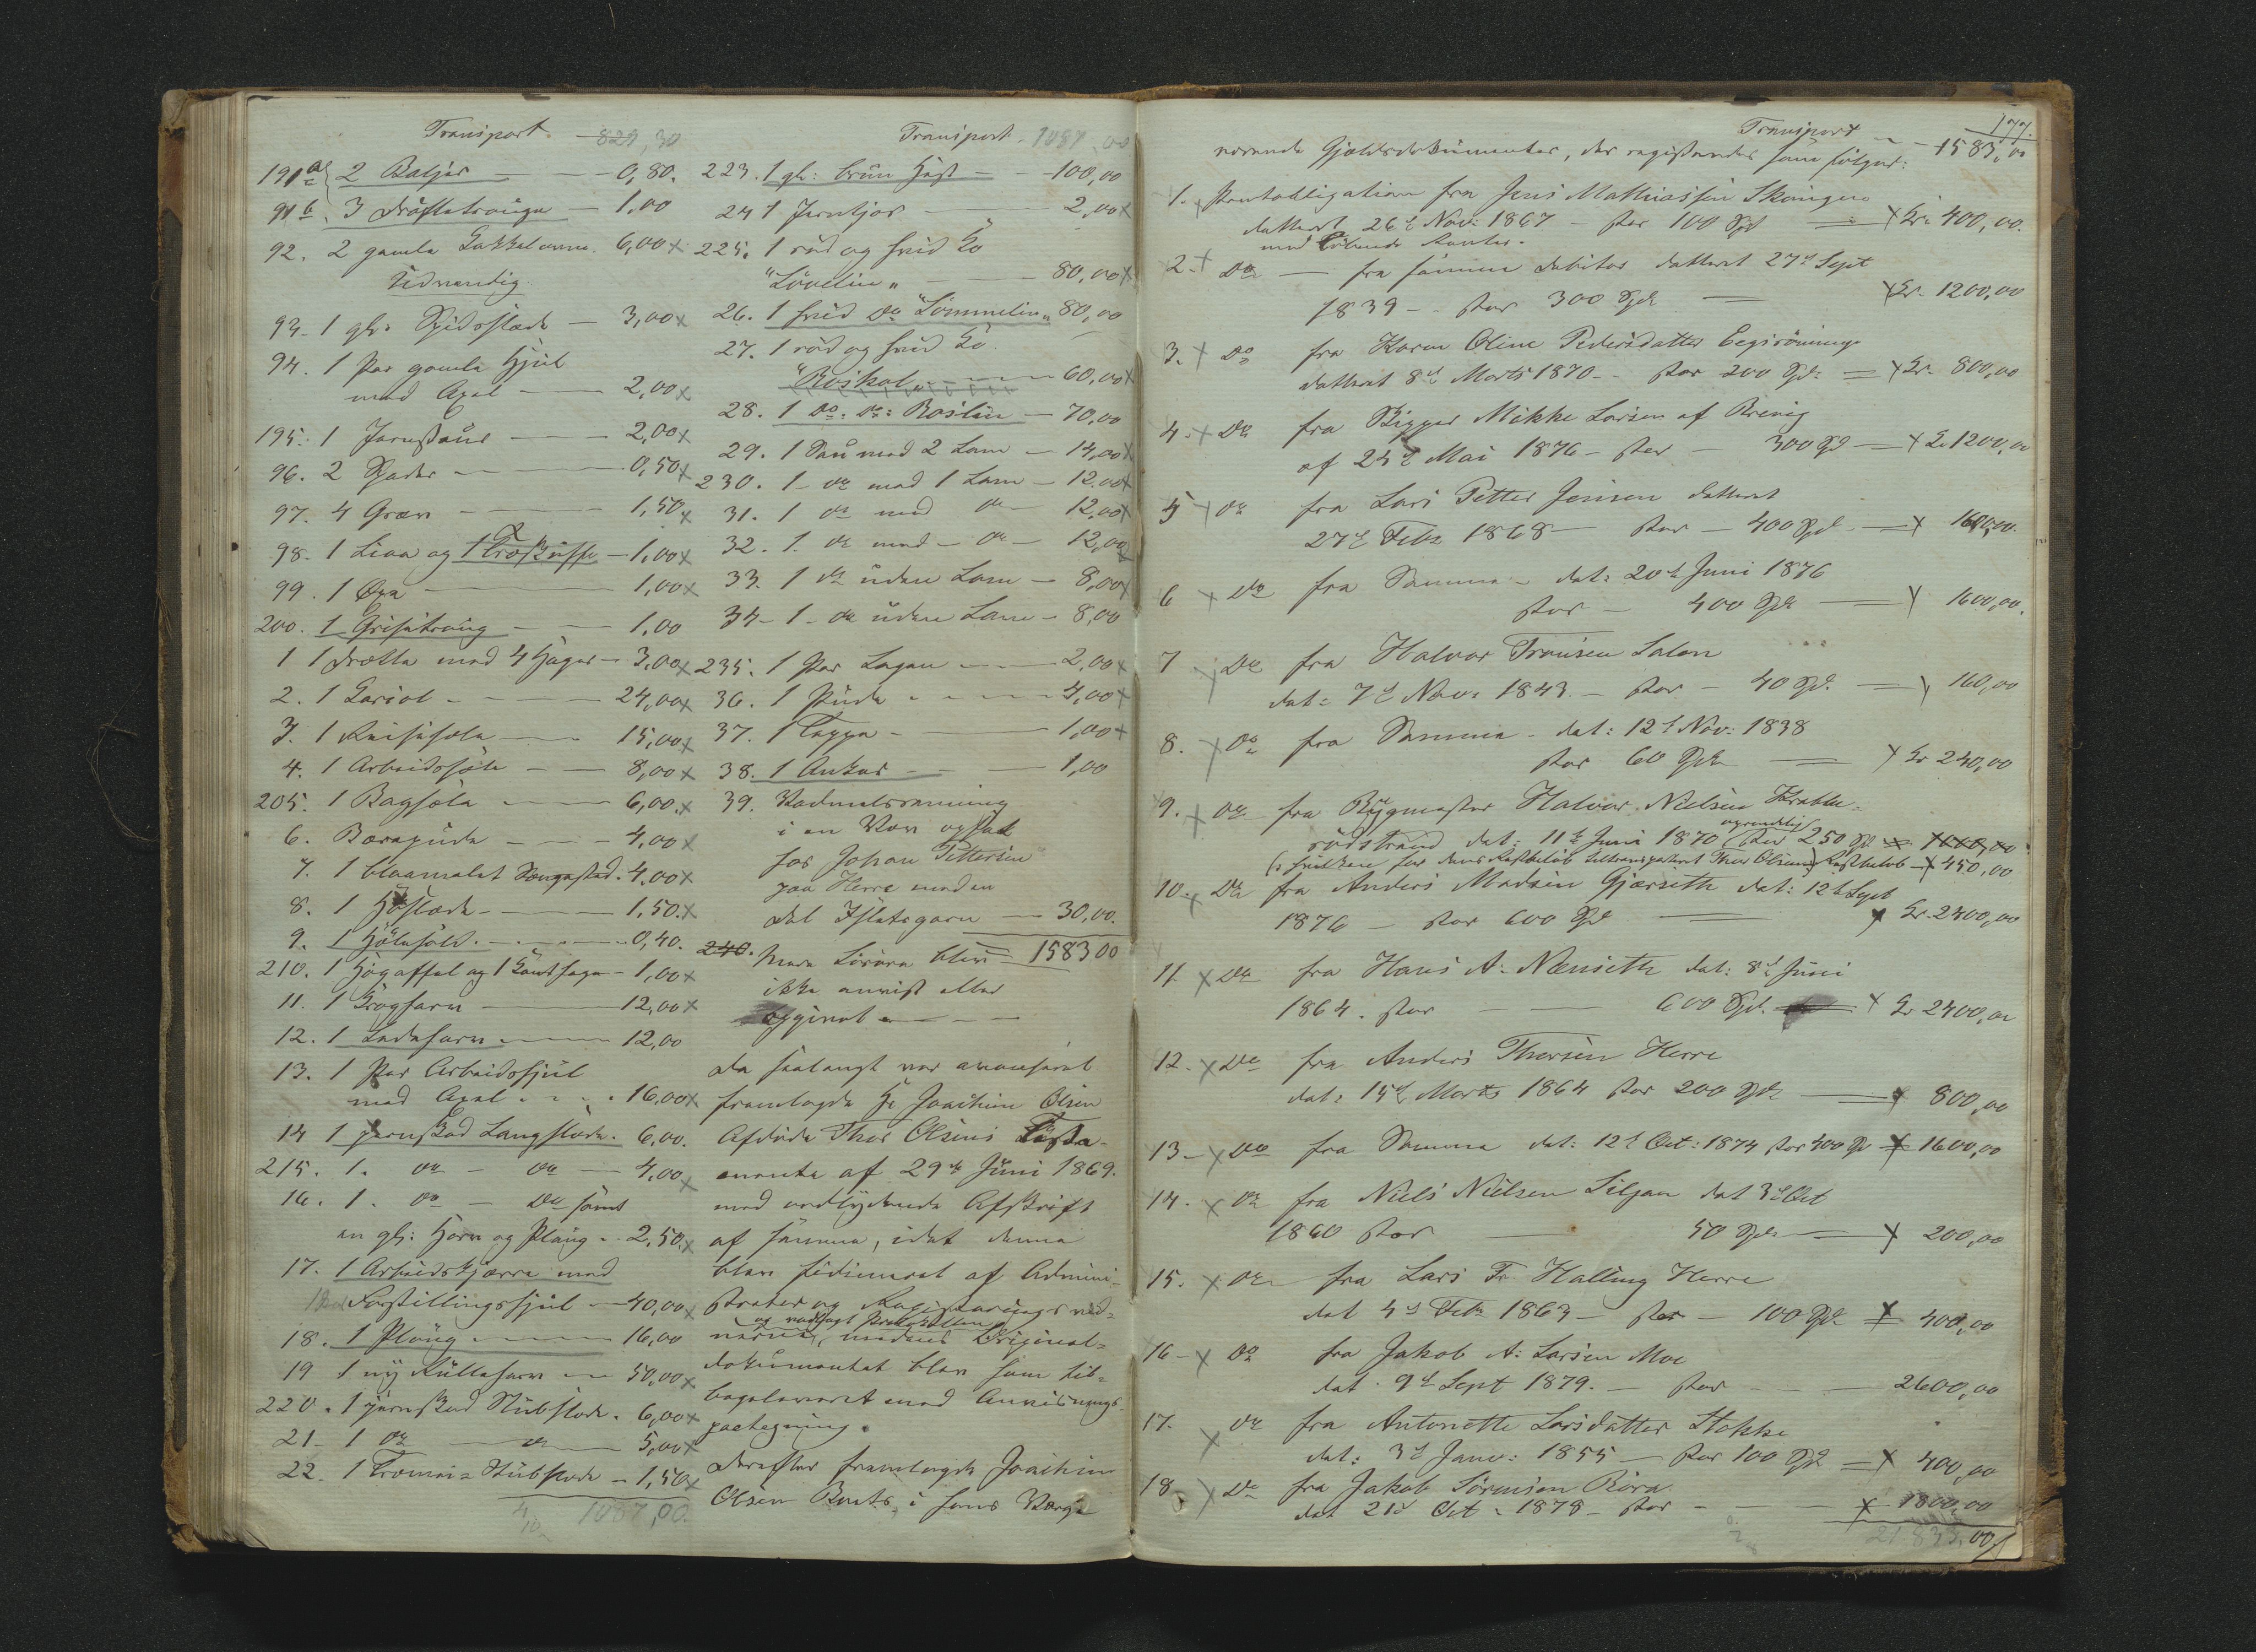 Transport 829,30
191a 2 Baljer — 0,80.
91b 3 Drøftetrouge — 1,00
92. 2 gamle Kakkelovne. 6,00 x
Udvendig
93. 1 gl. Spidsslæde — 3,00 x
94. 1 Par gamle Hjul
med Axel — 2,00 x
195. 1 Jernstaur — 2,00 x
96. 2 Spader — 0,50 x
97. 4 Græv — 1,50 x
98. 1 Liaa og 1 — 1,00 x
99. 1 Øxe — 1,00 x
200. 1 Grisetroug — 1,00
1 1 Drætte med 4 Hager — 3,00 x
2. 1 Kariol — 24,00 x
3. 1 Reisesele — 15,00 x
4. 1 Arbeidssele — 8,00 x
205. 1 Bagsele — 6,00 x
6. Bærepude — 4,00 x
7. 1 blaamalet Sengested. 4,00 x
8. 1 Høslæde — 1,50. x
9. 1 — 0,40.
210. 1 Høgaffel og 1 — 1,00 x
11. 1 Krogharv — 12,00 x
12. 1 Ladeharv — 12,00
13. 1 Par Arbeidshjul
med Axel — 16,00 x
14 1 jernskod Langslæde. 6,00.
215. 1. do — do — 4,00 x
16. 1. do — do samt
en gl: Harv og Ploug — 2,50. x
17. 1 Arbeidskjærre med
Forstillingshjul — 40,00 x
18. 1 Ploug — 16,00
19 1 ny Rulleharv — 50,00 x
220. 1 jernskod Stubslæde. 6,00 x
21 — 1 do — do 5,00 x
22. 1 Stubslæde — 1,50 x
1087,00.
Transport 1087,00
223. 1 gl: brun Hest — 100,00
24 1 Jerntjor — 2,00 x
225. 1 rød og hvid Ko
"Løvelin" — 80,00 x
26. 1 hvid do "Sommelin" 80,00
27. 1 rød og hvid Ko
"Roskol" — 60,00 x
28. 1 do. do: Roslin — 70,00
29. 1 Sau med 2 Lam — 14,00 x
230. 1 — do med 1 Lam — 12,00 x
31. 1 do med do — 12,00 x
32. 1. do med — do — 12,00
33. 1 do uden Lam — 8,00 x
34 — 1 — do uden Lam — 8,00
235. 1 Par Lagen — 2,00 x
36. 1 Pude — 4,00 x
37. 1 Teppe — 1,00 x
38. 1 Anker — 1,00
39. Vadmelsrenning
i en Væv opsat
hos Johan Pettersen
paa Herre med en
Del Islætsgarn — 30,00.
240. Mere Løsøre blev 1583 00
ikke anvist eller
opgivet —
Da saalangt var avanseret
fremlagde Hr Joachim Olsen
Afdøde Thor Olsens Testa-
mente af 29de Juni 1869.
med vedlydende Afskrift
af samme, idet denne
blev fidimeret af Admini-
strator og Registreringsvid-
og vedlagt Protokollen
nerne, medens Original-
dokumentet blev ham til-
bageleveret med Anvisnings-
paategning.
Derefter fremlagde Joachim
Olsen Buets, i hans Værge
177.
Transport — 1583,00
værende Gjældsdokumenter, der registreredes som følger:
1. x Pantobligation fra Jens Mathiassen Skougen
datteret 26de Nov: 1867 — stor 100 Spd x Kr. 400,00.
med løbende Renter.
2. x Do — fra samme Debitor datteret 27de Sept
1839 — stor 300 Spd — x Kr. 1200,00
3. x Do fra Karen Oline Pedersdatter
datteret 8de Marts 1870 — stor 200 Spd = x Kr. 800,00
4. x Do fra Skipper Mikkel Larsen af Brevig
af 25de Mai 1876 — stor — 300 Spd — x Kr 1200,00
5 x do fra Lars Petter Jensen datteret
27de Febr 1868 — stor — 400 Spd — x 1600,00.
6 x Do fra Samme — dat: 20de Juni 1876
stor — 400 Spd — x 1600,00.
7 x Do fra Halvor Fransen Salen
dat: 7de Nov: 1843 — stor — 40 Spd. — x 160,00
8. x Do fra Samme — dat: 12de Nov: 1838
stor 60 Spd — x Kr 240,00
9. x do fra Bygmester Halvor Nielsen Krabbe-
oprindelig
rødstrand dat: 11te Juni 1870 stor 250 Spd x 1000,00
Thor Olsen) Restbeløb x 450,00
10. x Do fra Anders Madsen Gjærseth dat: 12te Sept
1876 — stor 600 Spd — x Kr. 2400,00
11. x Do fra Hans A: Nenseth dat: 8de Juni
1864. stor — 600 Spd. x Kr 2400,00
12. x Do fra Anders Thorsen Herre
dat: 15de Marts 1864 stor 200 Spd — x 800,00
13 — x Do fra Samme dat: 12te Oct: 1874 stor 400 Spd x 1600,00
14. x do fra Niels Nielsen Siljan dat 3de Oct
1860 stor — 50 Spd — x 200,00
15. x do fra Lars Fr. Halling Herre
dat 4de Febr 1863 — stor — 100 Spd. x 400,00
16 — x Do fra Jakob A: Larsen Moe
dat. 9de Sept 1879. — stor — 2600,00
17. x do fra Antonette Larsdatter Stokke
dat: 3de Janv: 1855 — stor 100 Spd = x 400,00
18. x Do fra Jakob Sørensen Røra
dat 21de Oct: 1878 — stor — x 1800,00
21 833,00